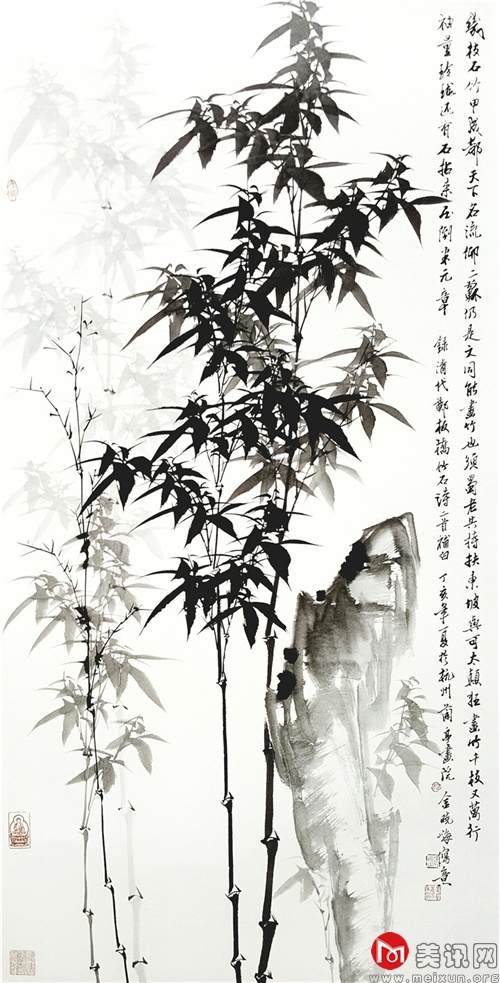 幾枝石竹甲成都天下名流仰二蘇仍是文同能畫竹也須蜀老共持扶東坡與可太顛狂畫竹千枝又萬行
袖里玲瓏还有石拈来压倒米元章 録清代鄭板橋竹石詩二首補白 丁亥年夏於杭州蘭亭畫院 金曉海寫意
美讯网
www.meixun.org